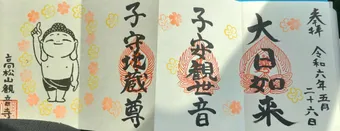 奉拝
令和六年五月
二十六日
大日如来
子安観世音
子守地蔵尊
高松山観音寺